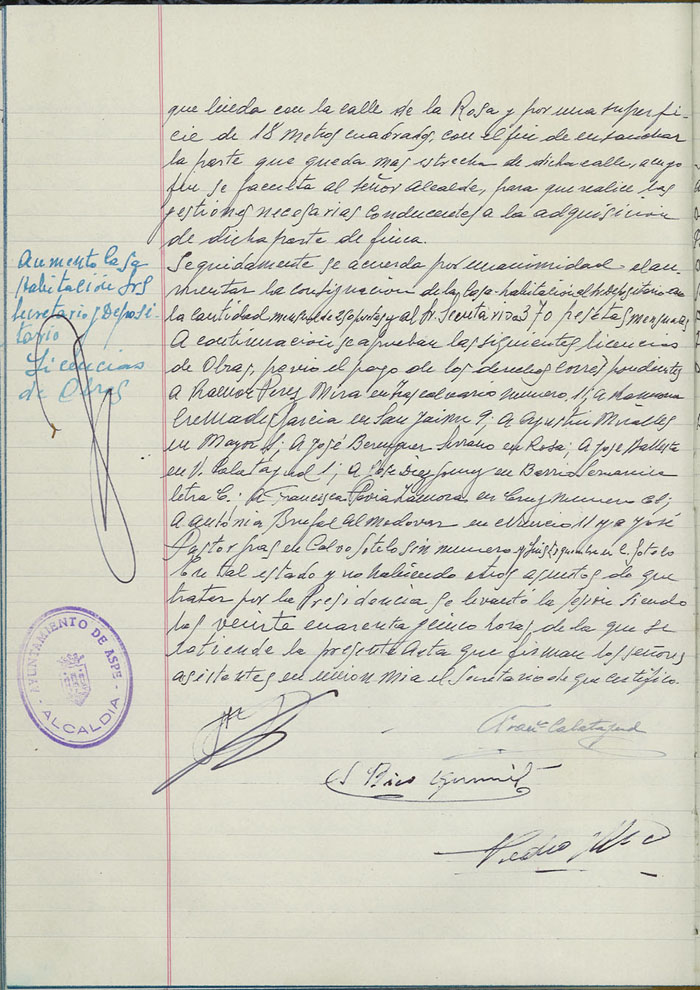 que linda con la calle de la Rosa y por una superfi-
cie de 18 metros cuadrados, con el fin de ensanchar
la parte que queda mas estrecha de dicha calle, a cuyo
fin se faculta al señor Alcalde, para que realice las
gestiones necesarias conducentes a la adquisición
de dicha parte de finca.
Aumento Casa
habitación Srs
Secretario y Deposi-
tario
Seguidamente se acuerda por unanimidad el au-
mentar la consignación de la casa-habitación al Depositario en
la cantidad mensual de 250 ptas y al Sr. Secretario a 370 pesetas mensuales
Licencias
de Obras
A continuación se aprueban las siguientes licencias
de Obras, previo el pago de los derechos correspondientes
a Ramón Perez Mira en Trascalvario numero 11, a
Cremades Garcia en San Jaime 9; a Agustin Miralles
en Mayor; a José Berenguer Serrano en Rosa; a Jose Ballesta
en V. Calatayud 1; a José Diez en Barrio
letra C; a Francisca Pavia Zamora en Cruz numero
a Antónia Brufal Almodovar en 11 y a José
Pastor en Calvo Sotelo sin numero y en C. Sotelo
En tal estado y no habiendo otros asuntos de que
tratar por la Presidencia se levantó la sesión siendo
las veinte cuarenta y cinco horas de la que se
extiende la presente Acta que firman los señores
asistentes en union mia el Secretario de que certifico.
AYUNTAMIENTO DE ASPE
- ALCALDIA -
Franº Calatayud
Pedro